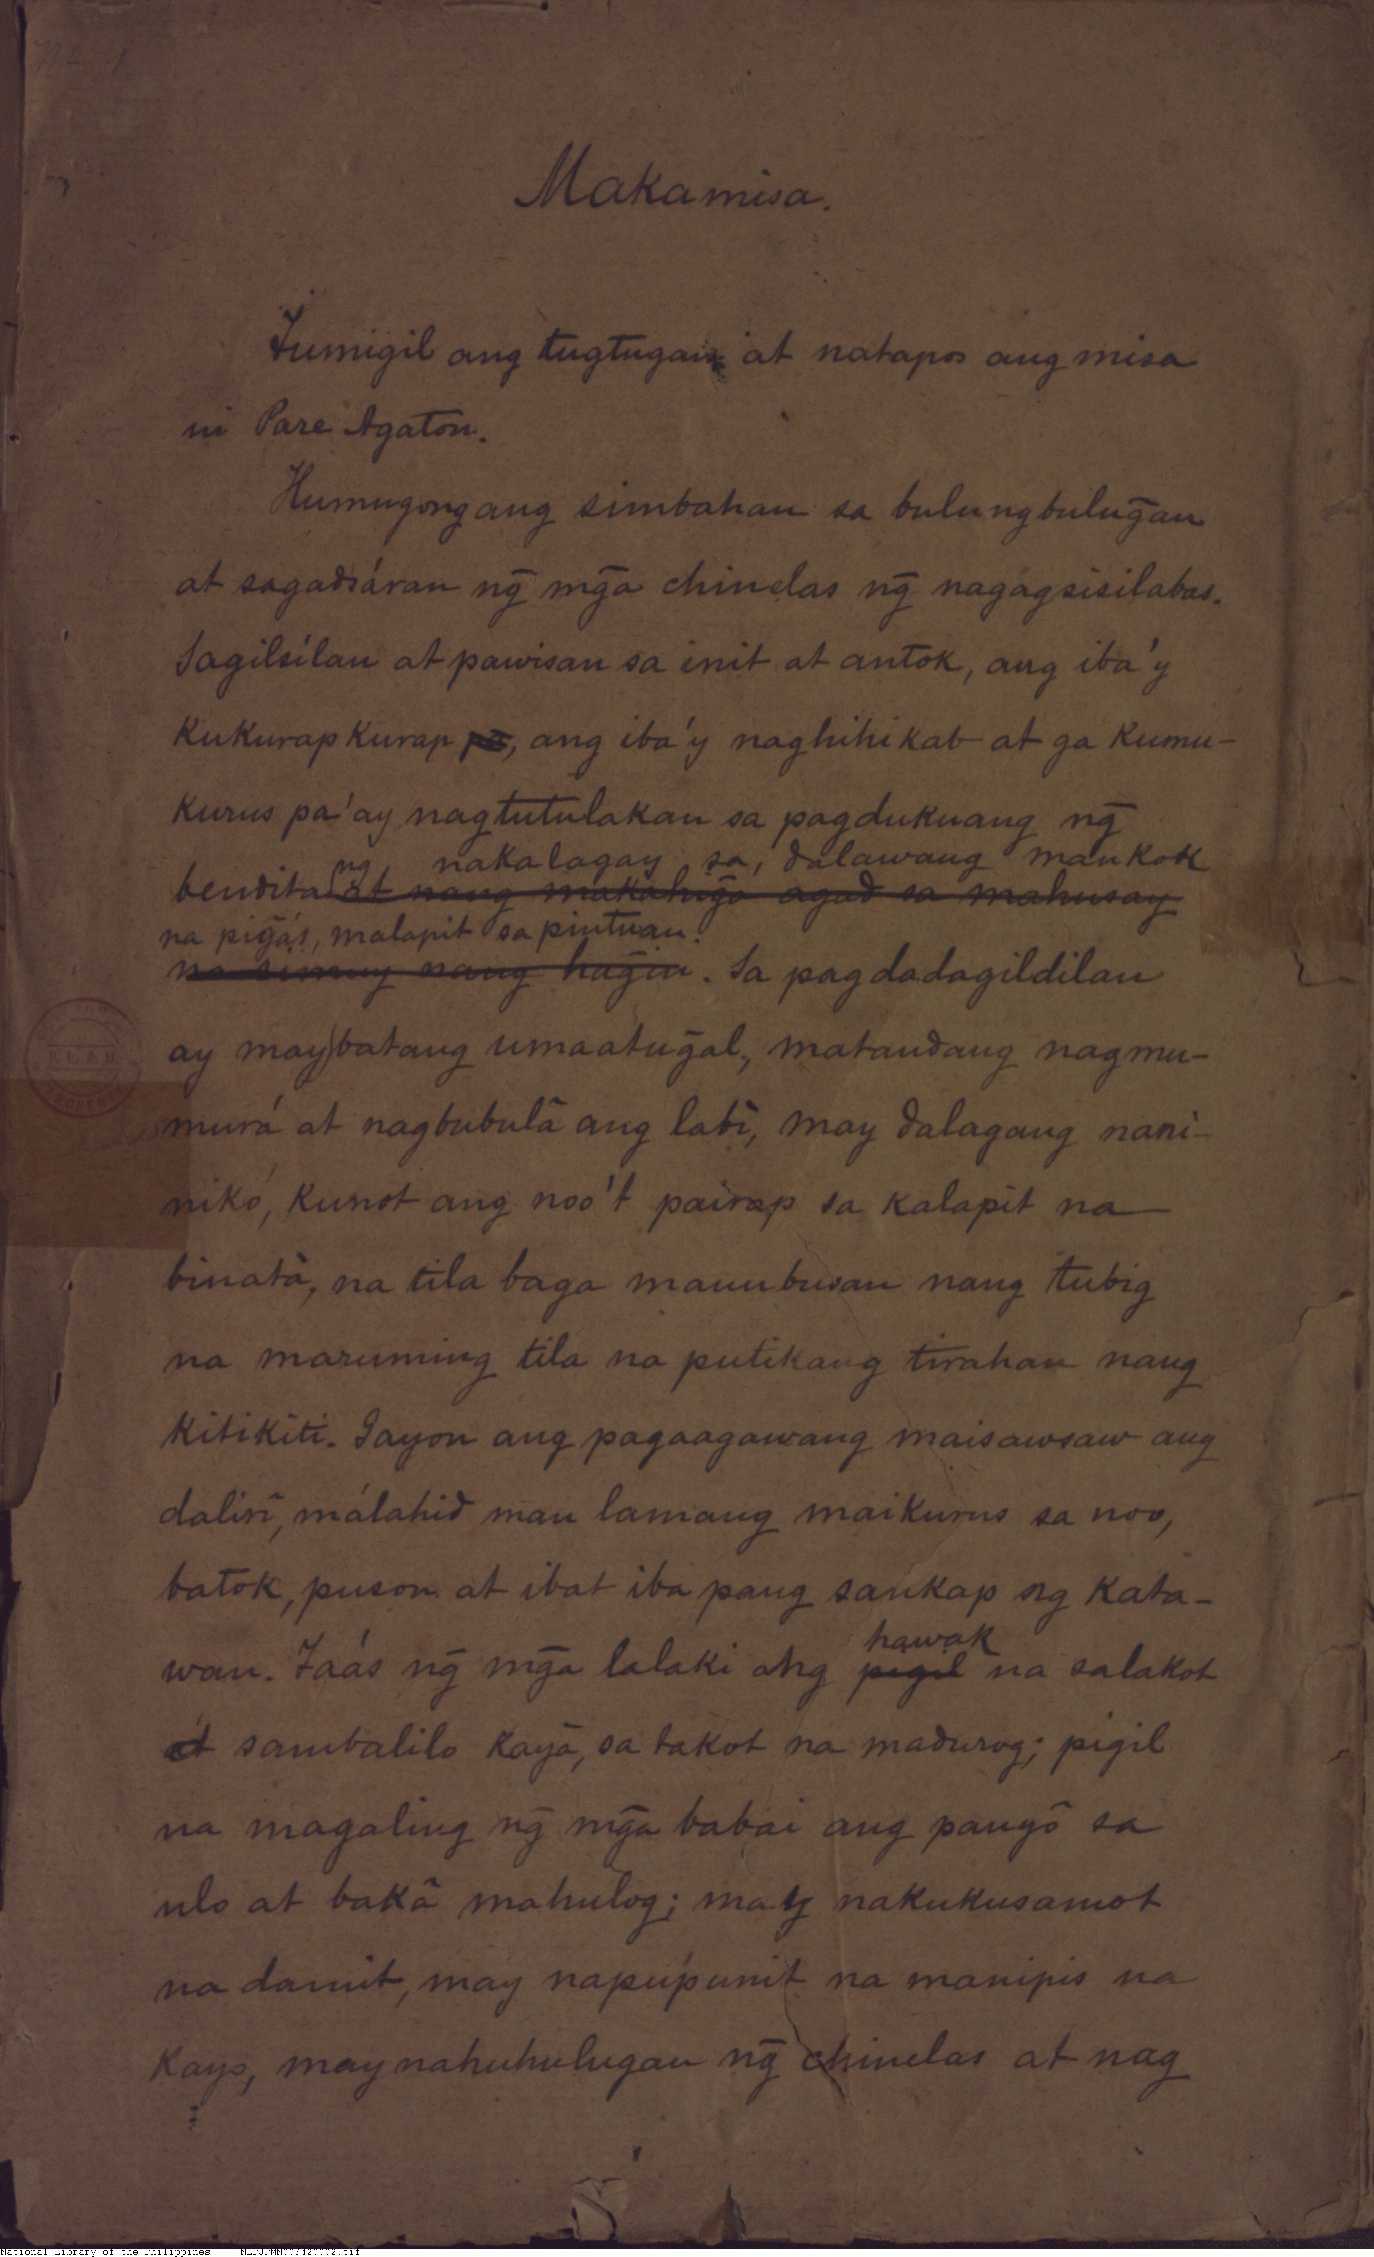 Makamisa.
Tumigil ang tugtugan at natapos ang misa
ni Pare Agaton.
Humugong ang simbahan sa bulungbulug̃an
at sagadsáran ng̃ mg̃a chinelas ng̃ nagagsisilabas.
Sagilsílan at pawisan sa init at antok, ang iba'y
kukurapkurap pa, ang iba'y naghihikab at ga kumu-
kurus pa'ay nagtutulakan sa pagdukuang ng̃
ng nakalagay sa dalawang mankok
bendita at nang makahig̃a agad sa mahusay
na pig̃ás, malapit sa pintuan.
na simuy nang hag̃in. Sa pagdadagildilan
ay may batang umaatug̃al, matandang nagmu-
murá at nagbubulâ ang labì, may dalagang nani-
nikó, kunot ang noo't pairap sa kalapit na
binatà, na tila baga mauubusan nang tubig
na maruming tila na putikang tirahan nang
kitikiti. Gayon ang pagaagawang maisawsaw ang
dalirî, málahid man lamang maikurus sa noo,
batok, puson at ibat iba pang sankap ng kata-
wan. Taás ng̃ mg̃a lalaki ang
hawak
pigil na salakot
at sambalilo kayâ, sa takot na madurog; pigil
na magaling ng̃ mg̃a babai ang panyô sa
ulo at bakâ mahulog; may nakukusamot
na damit, may napúpunit na manipis na
kayo, may nahuhulugan ng̃ chinelas at nag
National Library of the Philippines